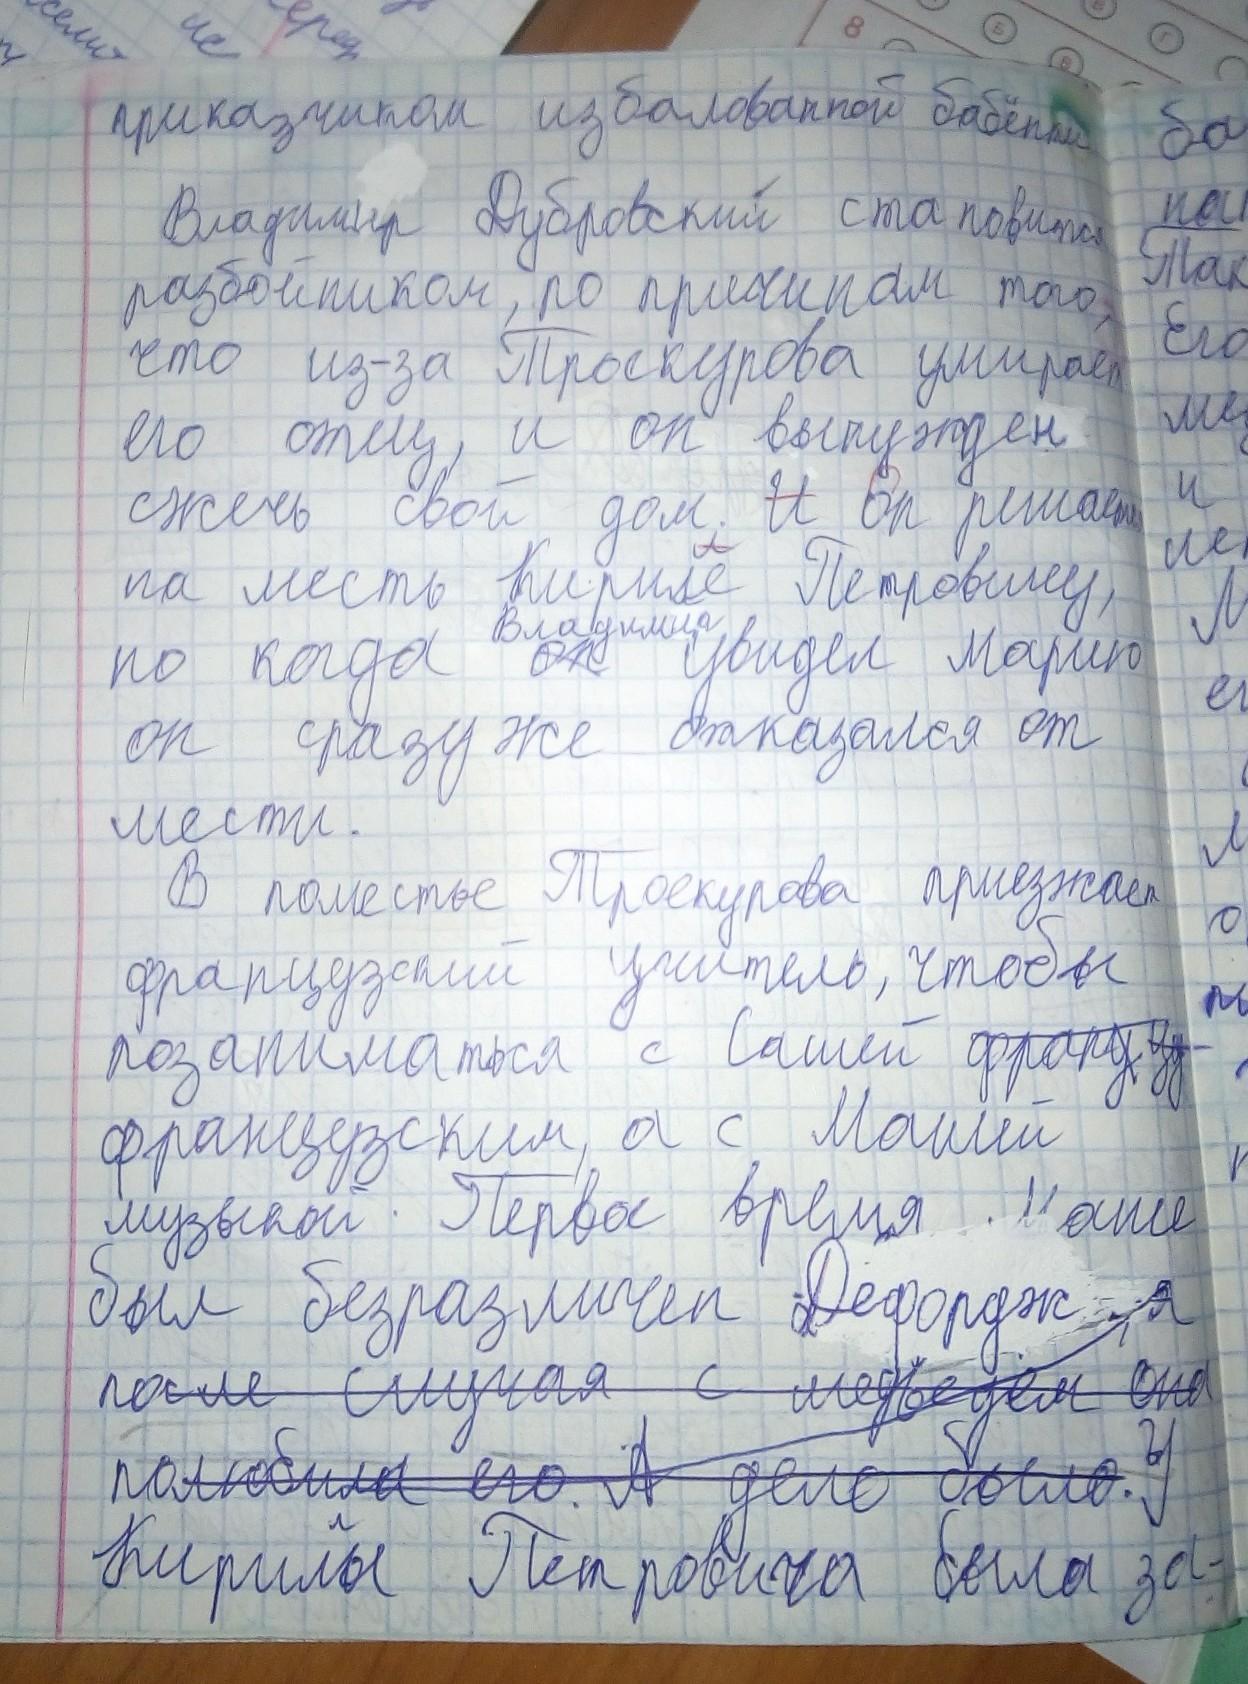 приказчиком избалованной бабёнки
Владимир Дубровский становится
разбойником, по причинам того,
что из-за Троскурова умирает
его отец, и он вынужден
сжечь свой дом. И Он решается
на месть Кириле Петровичу,
но когда он Владимир увидел Марию
он сразу же отказался от
мести.
В поместье Троекурова приезжает
французский учитель, чтобы
позаниматься с Сашей францу
французским, а с Машей
музыкой. Первое время Маше
был безразличен Дефордж
после случая с медведем она
полюбила его. А дело было. У
Кирилы Петровича была за-